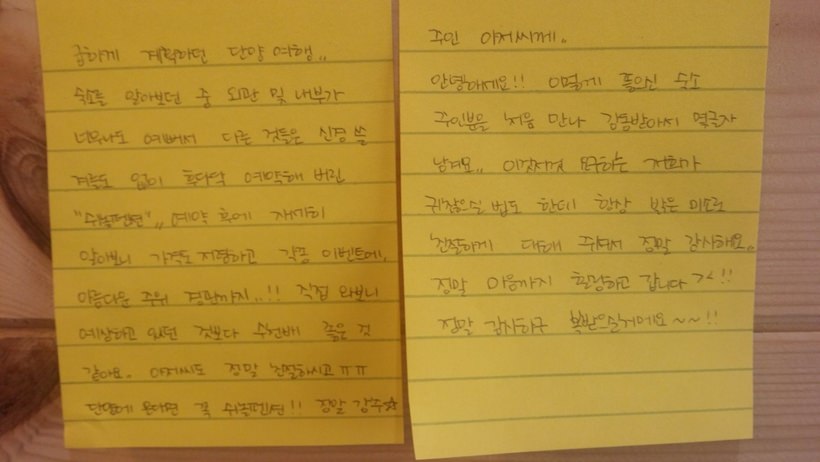 급하게 계획하던 단양 여행,,
숙소를 알아보던 중 외관 및 내부가
너무나도 예뻐서 다른 것들은 신경 쓸
겨를도 없이 후다닥 예약해 버린
예약 후에 자세히
알아보니 가격도 저렴하고 각종 이벤트에,
아름다운 주위 경관까지..!! 직접 와보니
예상하고 있던 것보다 수천배 좋은 것
같아요. 아저씨도 정말 친절하시고 ㅠㅠ
단양에 온다면 꼭 !! 정말 강추☆
주인 아저씨께.
안녕하세요!! 이렇게 좋으신 숙소
주인분을 처음 만나 감동받아서 몇글자
남겨요,, 이것저것 요구하는 저희가
귀찮으실 법도 한데 항상 밝은 미소로
친절하게 대해 주셔서 정말 감사해요.
정말 마음까지 힐링하고 갑니다 ㅋㅅ!!
정말 감사하구 복받으실거에요~~!!